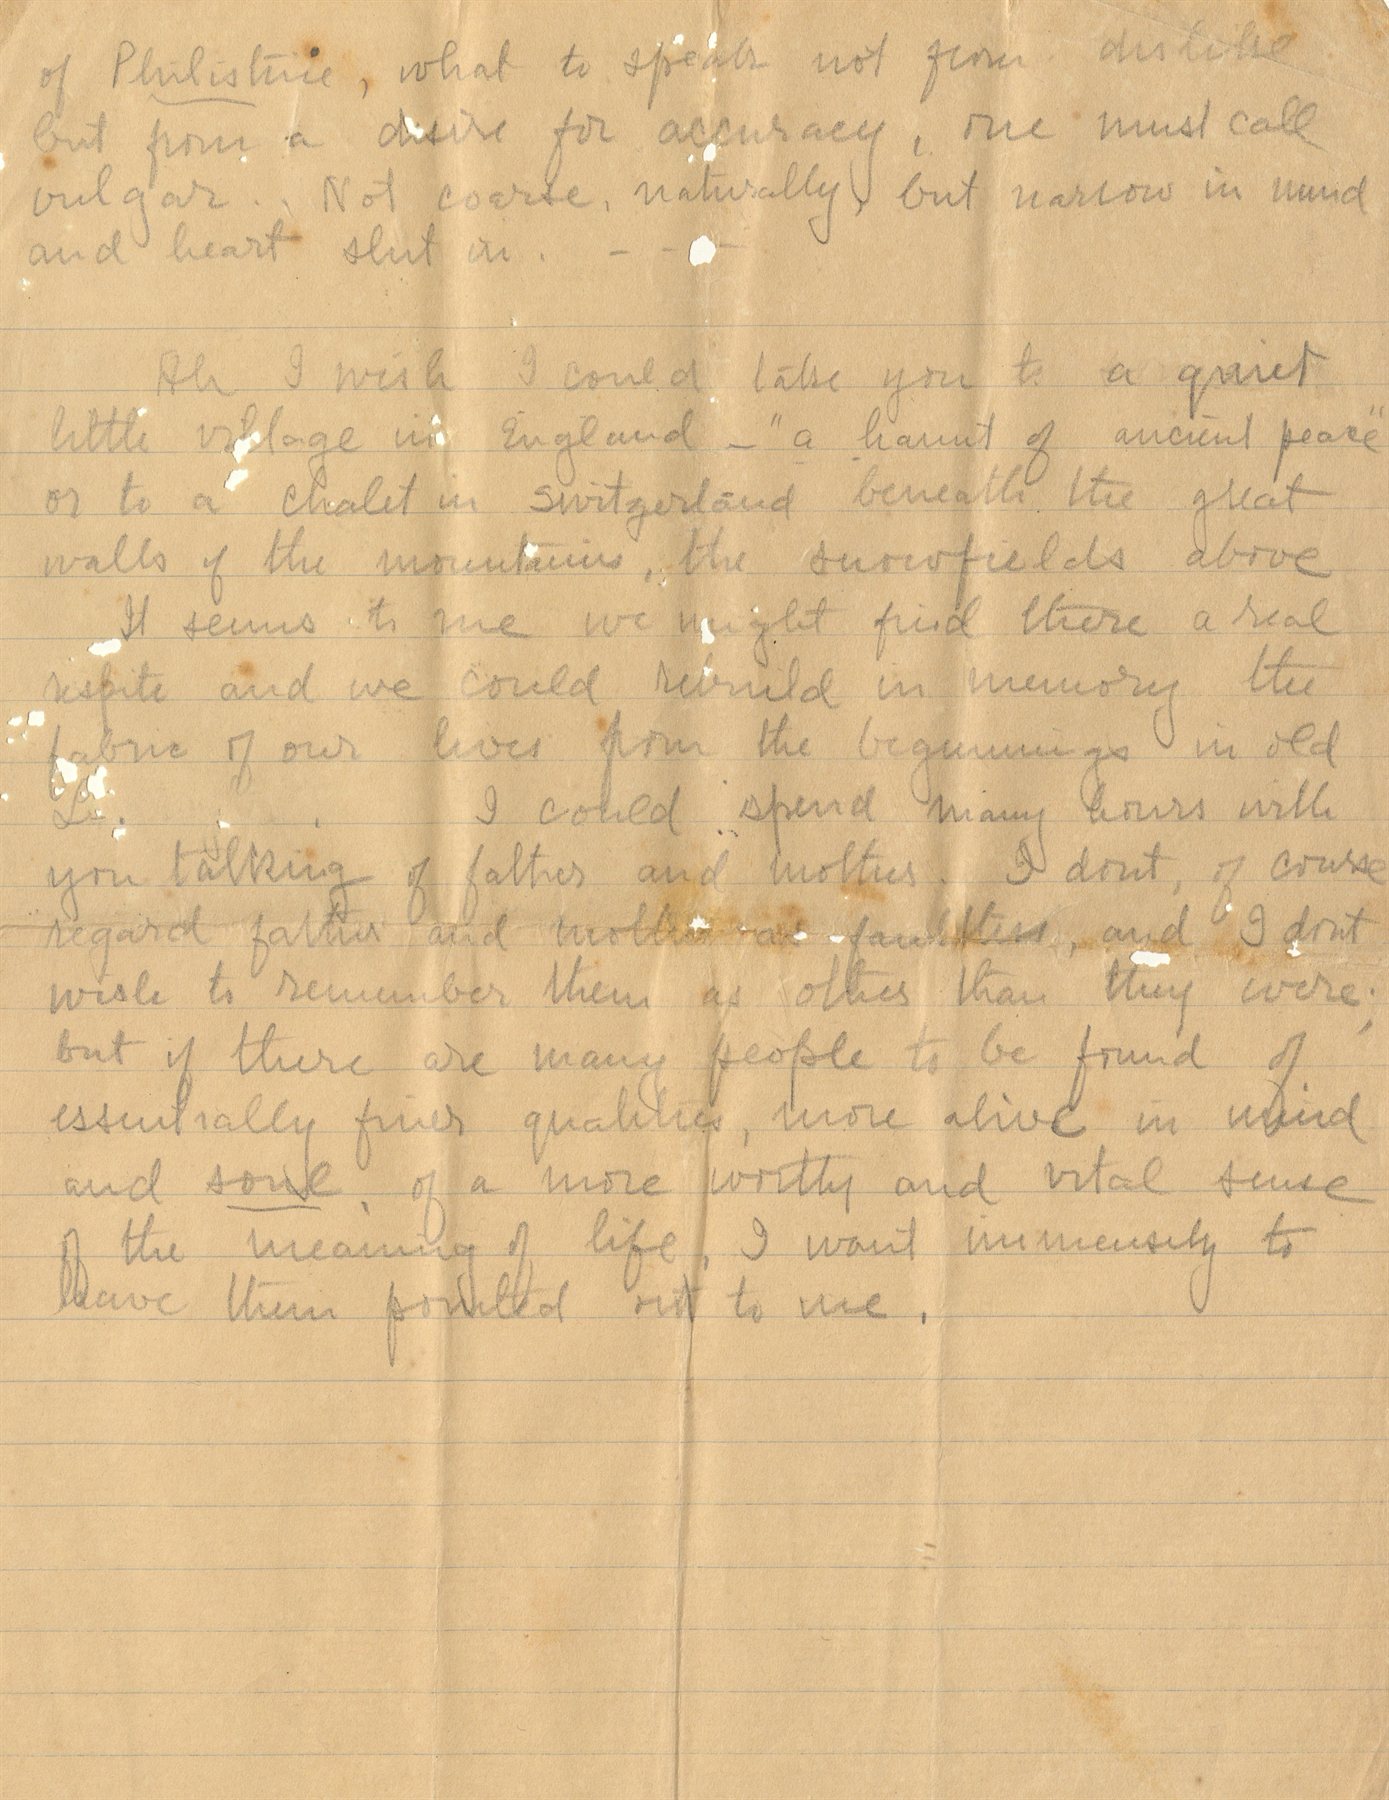 of Philistine, what to speak not from dislike
but from a desire for accuracy, one must call
vulgar. . Not coarse, naturally, but narrow in mind
and heart shut in. - - -
Ah I wish I could take you to a quiet
little village in England - "a haunt of ancient peace"
or to a chalet in Switzerland beneath the great
walls of the mountains, the snowfields above
It seems to me we might find there a real
respite and we could rebuild in memory the
fabric of our lives from the beginnings in old
I could spend many hours with
you talking of father and mother. I dont, of course
regard father and mother as faultless, and I dont
wish to remember them as other than they were;
but if there are many people to be found of
essentially finer qualities, more alive in mind
and soul, of a more worthy and vital sense
of the meaning of life, I want immensely to
have them pointed out to me.